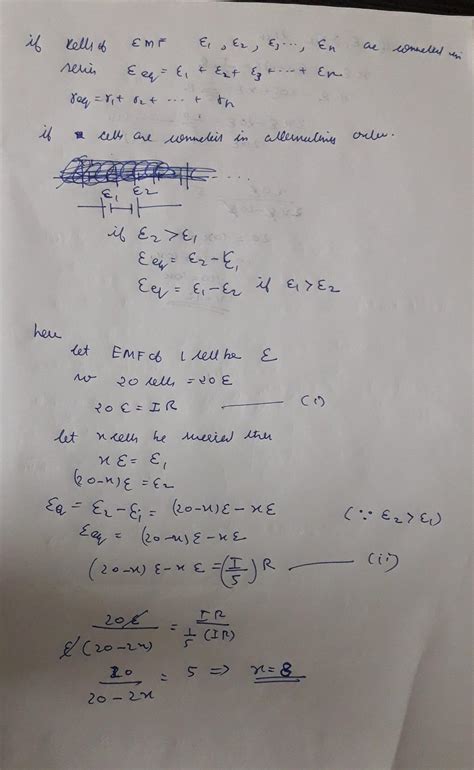 if cells of EMF ε₁, ε₂, ε₃ ..., εₙ are connected in
series εeq = ε₁ + ε₂ + ε₃ + ... + εₙ
req = r₁ + r₂ + ... + rₙ
if cells are connected in alternating order.
ε₁ ε₂
if ε₂ > ε₁
εeq = ε₂ - ε₁
εeq = ε₁ - ε₂ if ε₁ > ε₂
here
let EMF of 1 cell be ε
so 20 cells = 20ε
20ε = IR (i)
let x cells be then
xε = ε₁
(20-x)ε = ε₂
εeq = ε₂ - ε₁ = (20-x)ε - xε (∵ ε₂ > ε₁)
εeq = (20-x)ε - xε
(20-x)ε - xε = (I/5) R (ii)
20ε / ε(20-2x) = IR / 1/5 (IR)
20 / 20-2x = 5 ⇒ x = 8